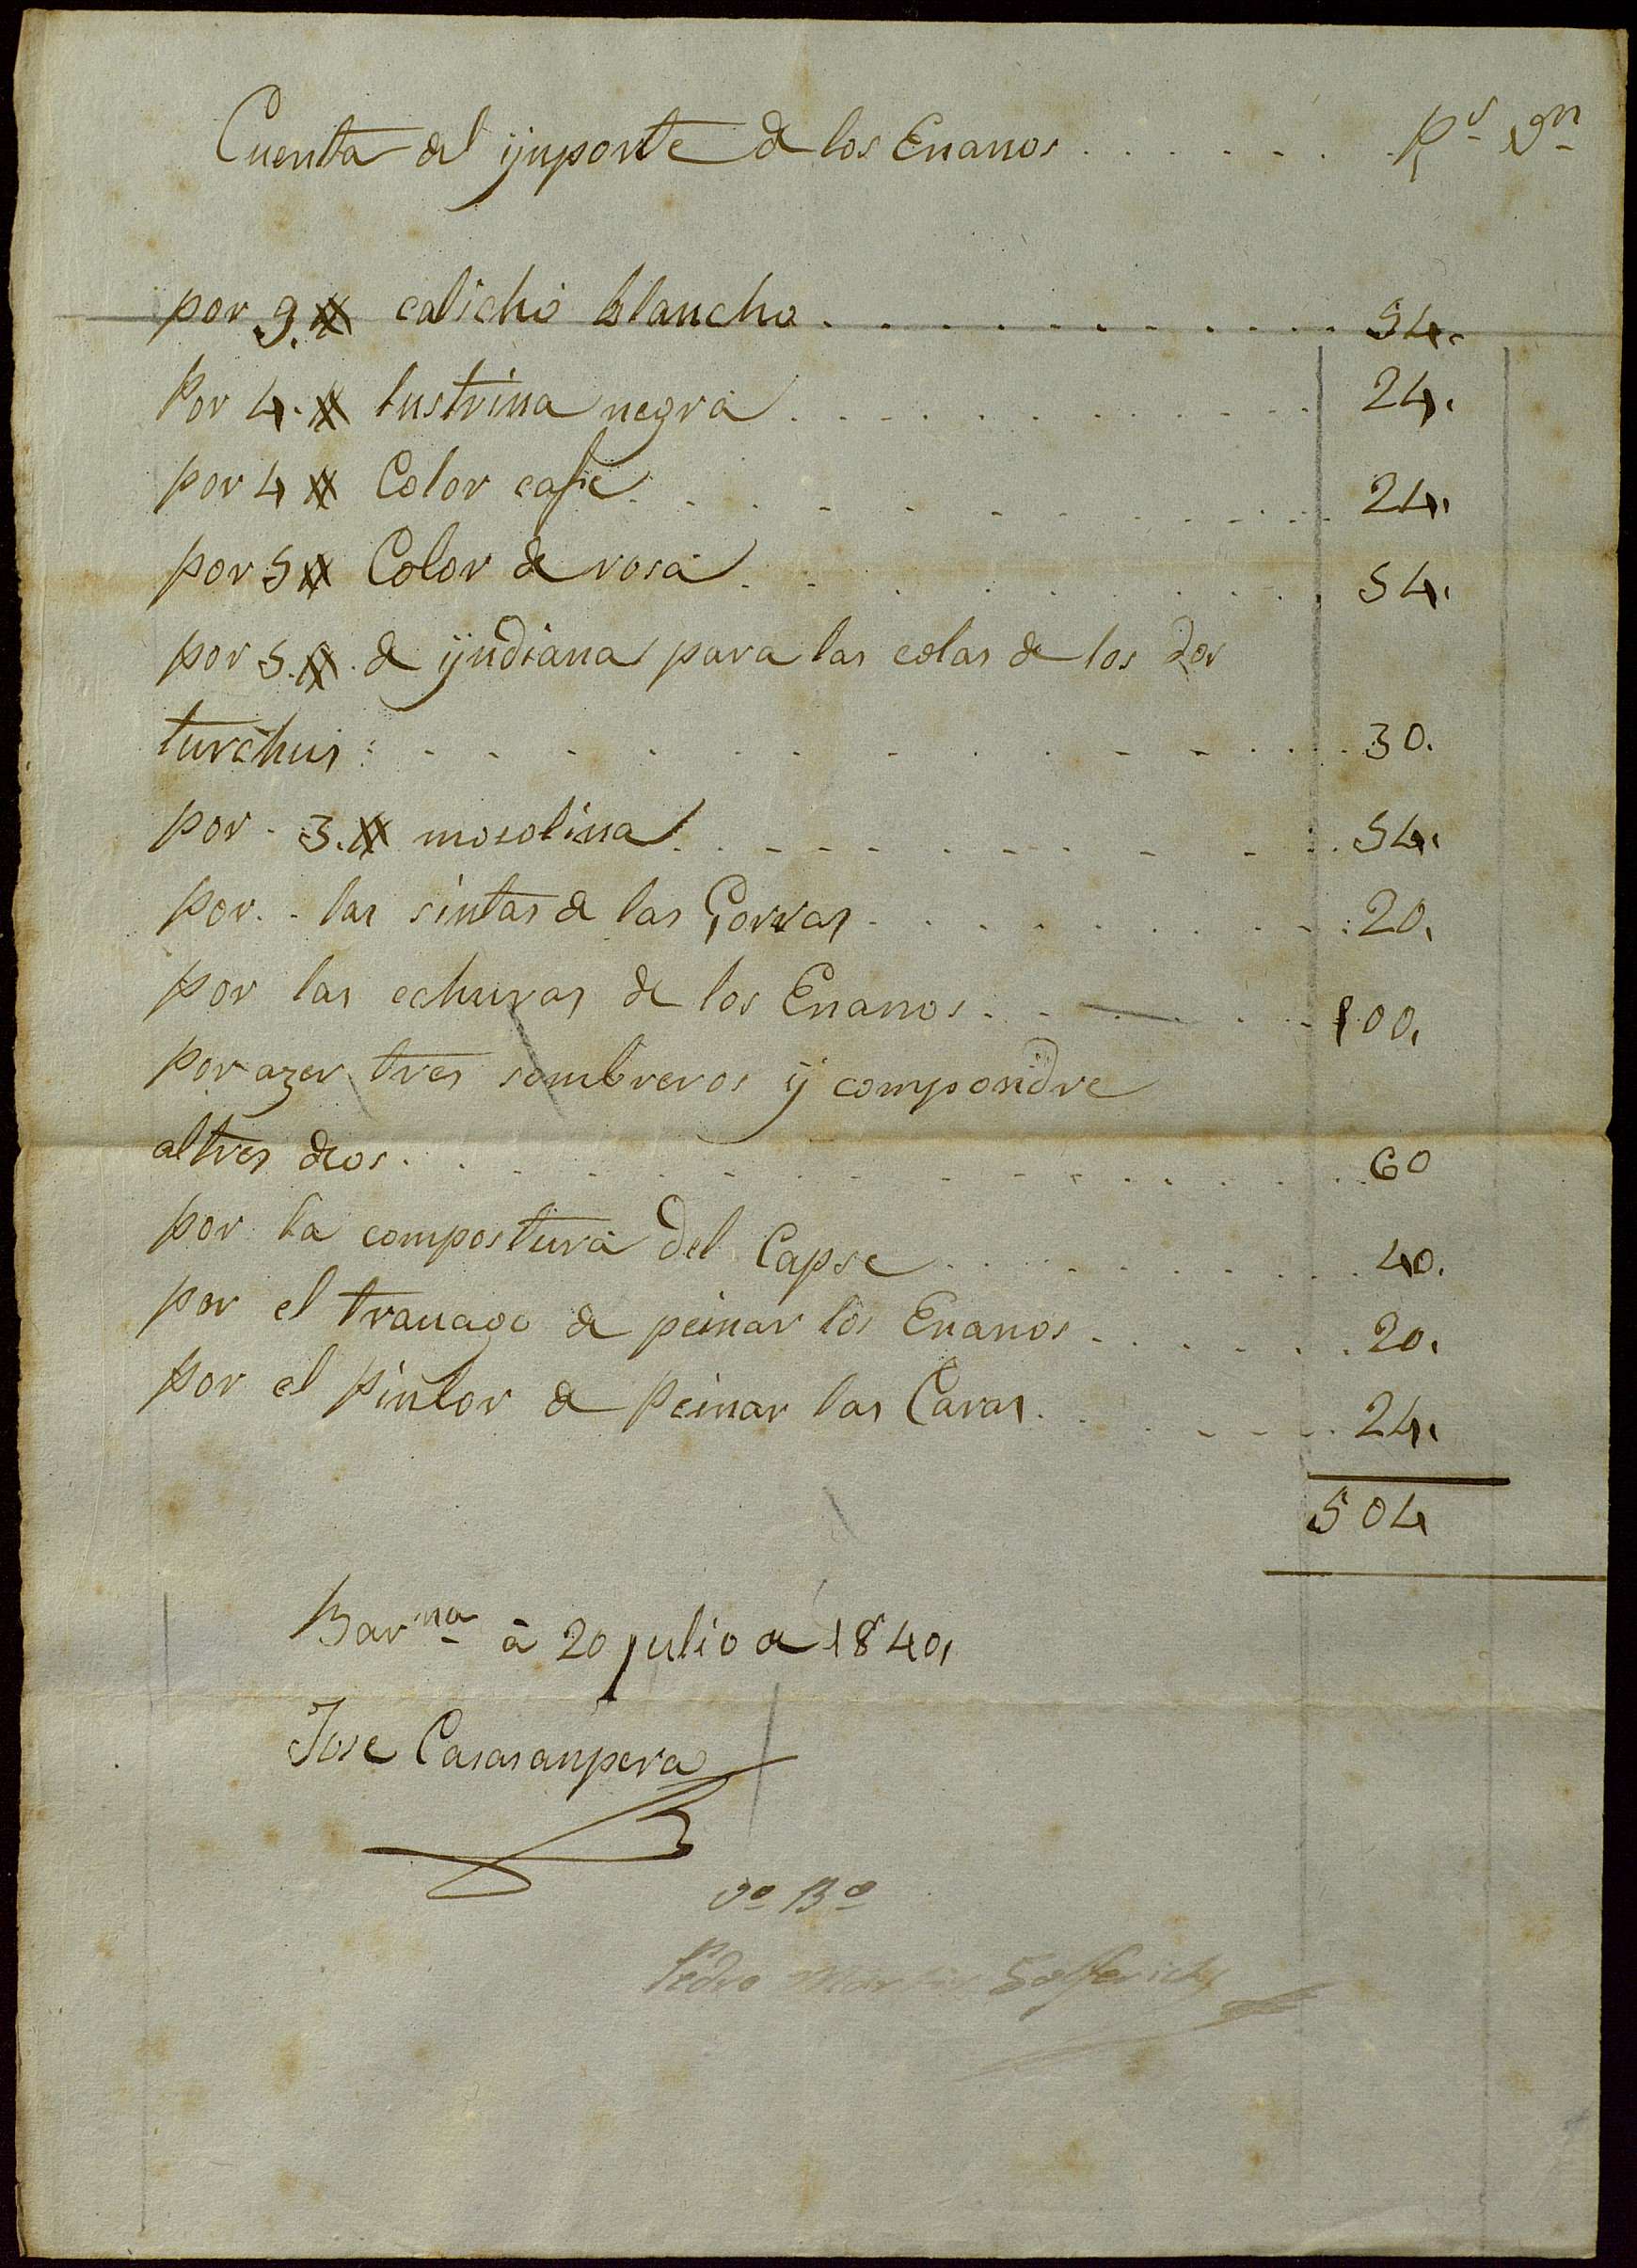 Cuenta del ynporte de los Enanos . . . . . . . R.s V.n
por 9. # calicho blancho . . . . . . . . . . . 54.
Por 4. # lustrina negra . . . . . . . . . . . 24.
por 4 # Color cafe . . . . . . . . . . . 24.
por 9 # Color de rosa . . . . . . . . . . 54.
por 5. # . de yndiana para las colas de los dos
turchus : . . . . . . . . . . . . 30.
por . 3. # mosolina . . . . . . . . . . . 54.
por . . las sintas de las Gorras . . . . . . . . . 20.
por las echuras de los Enanos . . . . . . . 100.
por azer tres sombreros y compondre
altres dos . . . . . . . . . . . . . . 60
por la compostura del Capse . . . . . . . . . 40.
por el trauago de peinar los Enanos . . . . . . 20.
por el pintor de peinar las Caras . . . . . . 24.
504
Bar.na à 20 julio de 1840,
Jose Casasanpera
Vº Bº
Pedro Martir Golferichs